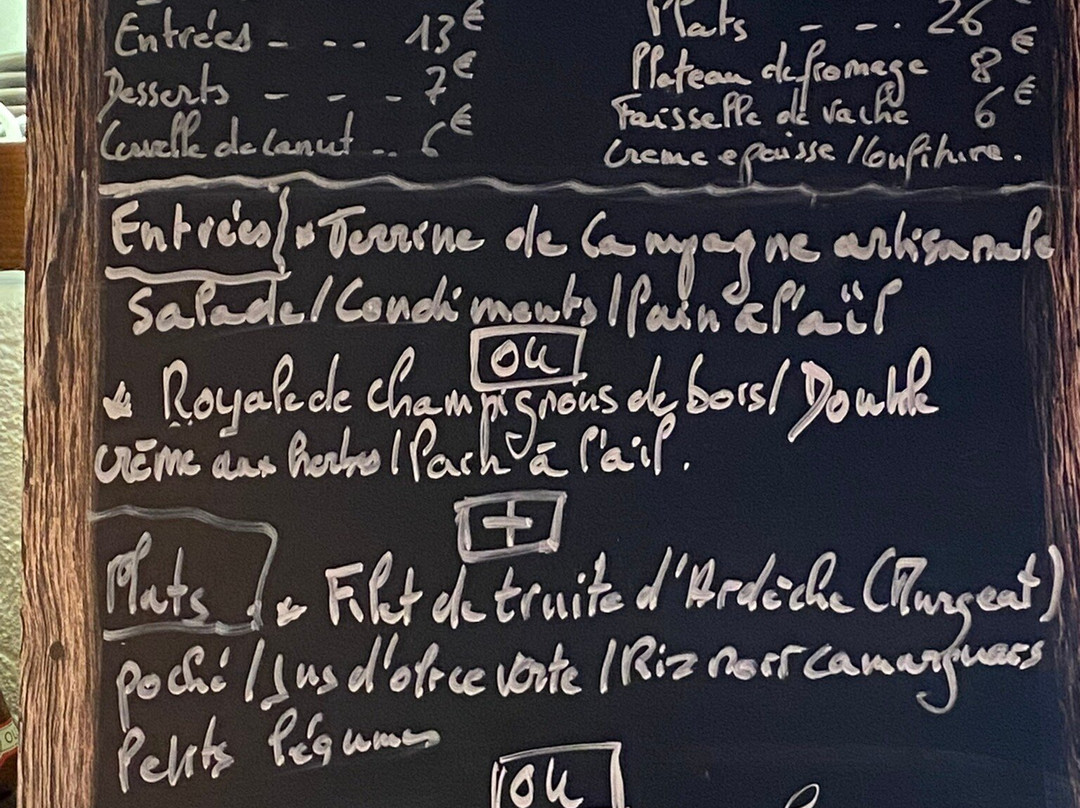 Entrées - - .. 13€
Plats - - . 26€
Desserts - - - 7€
Plateau de fromage 8€
Cervelle de Canut .. 6€
Faisselle de vache 6€
Creme epaisse / Confiture.
Entrées Terrine de Campagne artisanale
Salade / Condiments / Pain à l'aïl
ou
Royale de champignons de bois / Double
crème aux herbes / Pain à l'ail.
+
Plats Filet de truite d'Ardèche (Murgeat)
poché / Jus d'olive verte / Riz noir camarguais
Petits légumes
ou